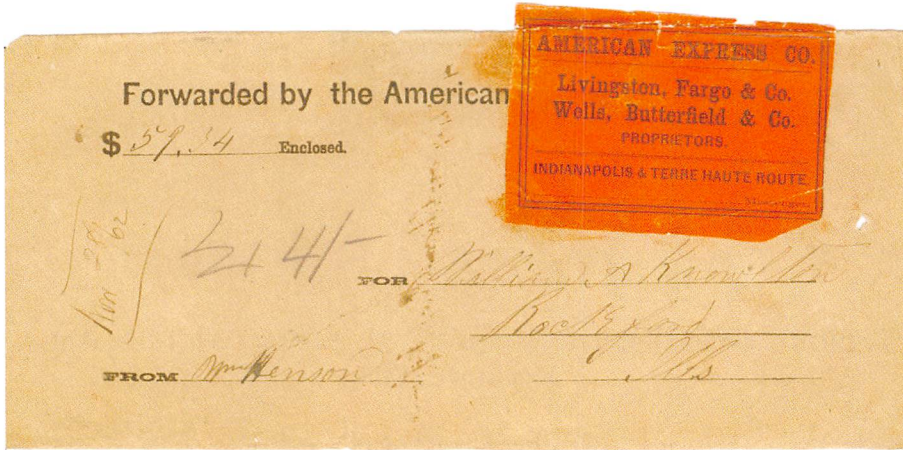 AMERICAN EXPRESS CO.
Livingston, Fargo & Co.
Wells, Butterfield & Co.
PROPRIETORS.
INDIANAPOLIS & TERRE HAUTE ROUTE
Forwarded by the American
$ 59.34 Enclosed.
Nov 62
FOR William A Knowlton
Rockford
Ills
FROM Wm Henson